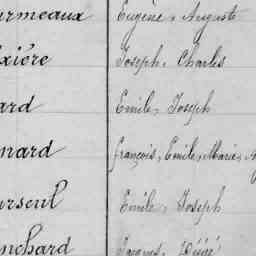 urmeaux Eugène, Auguste
xière Joseph, Charles
ard Emile, Joseph
nard françois, Emile, Marie,
urseul Emile, Joseph
nchard Jacques, Désiré